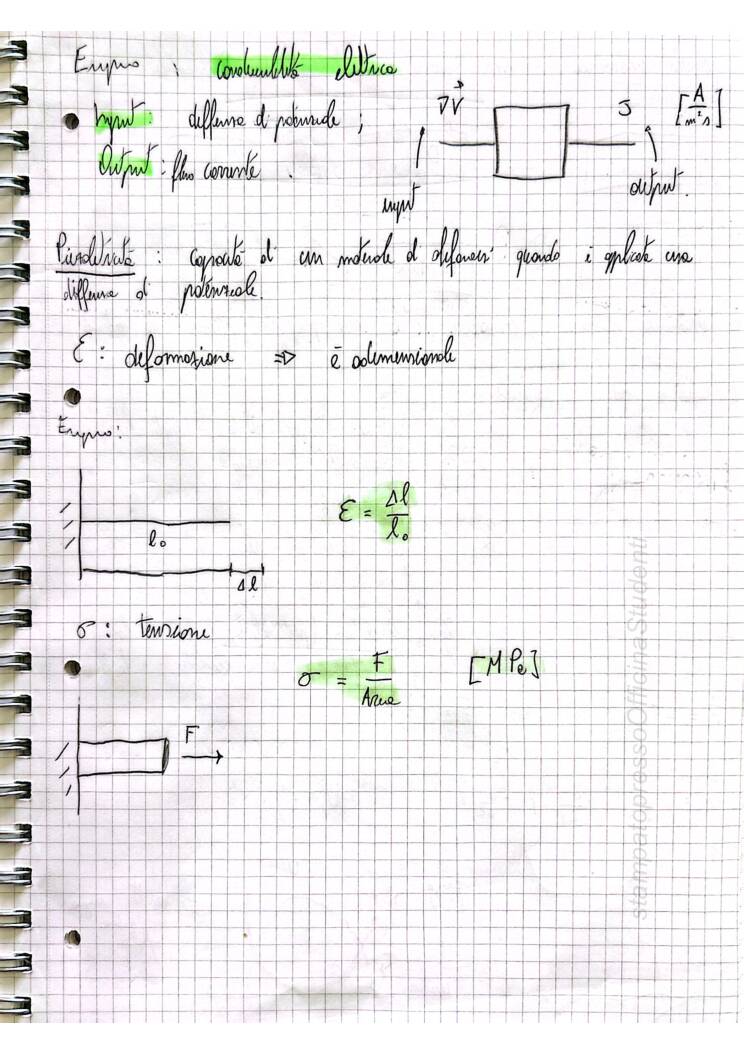 Esempio : conducibilità elettrica
Input : differenza di potenziale ;
Output : flusso corrente .
∇V⃗
J
[A/m²s]
input
output.
Piezoelettricità : capacità di un materiale di deformarsi quando è applicata una
differenza di potenziale.
ε : deformazione ⇒ è adimensionale
Esempio:
ε = Δl/l₀
l₀
Δl
σ : tensione
σ = F/Area [MPa]
F
stampatopressoOfficinaStudenti